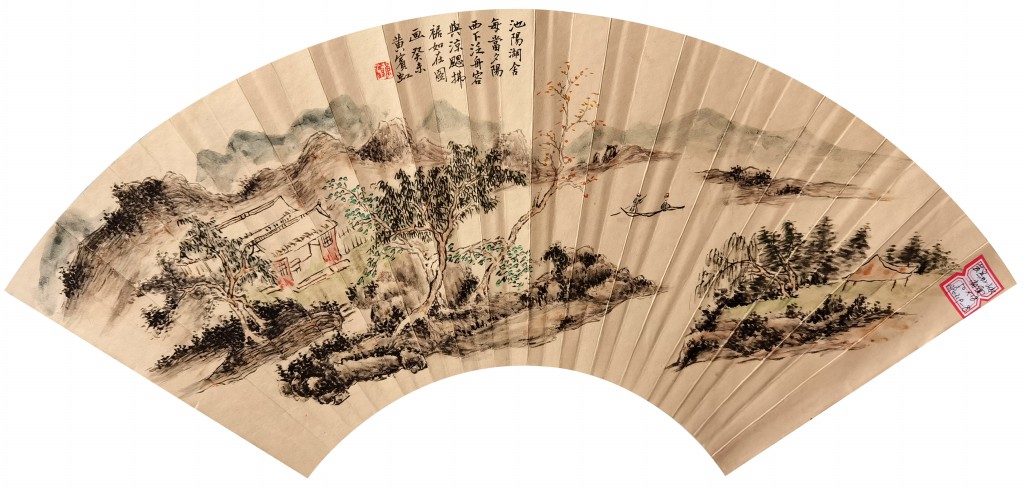 池陽湖舍
每當夕陽
西下泛舟容
與涼颸拂
裾如在圖
画癸未
黄賓虹